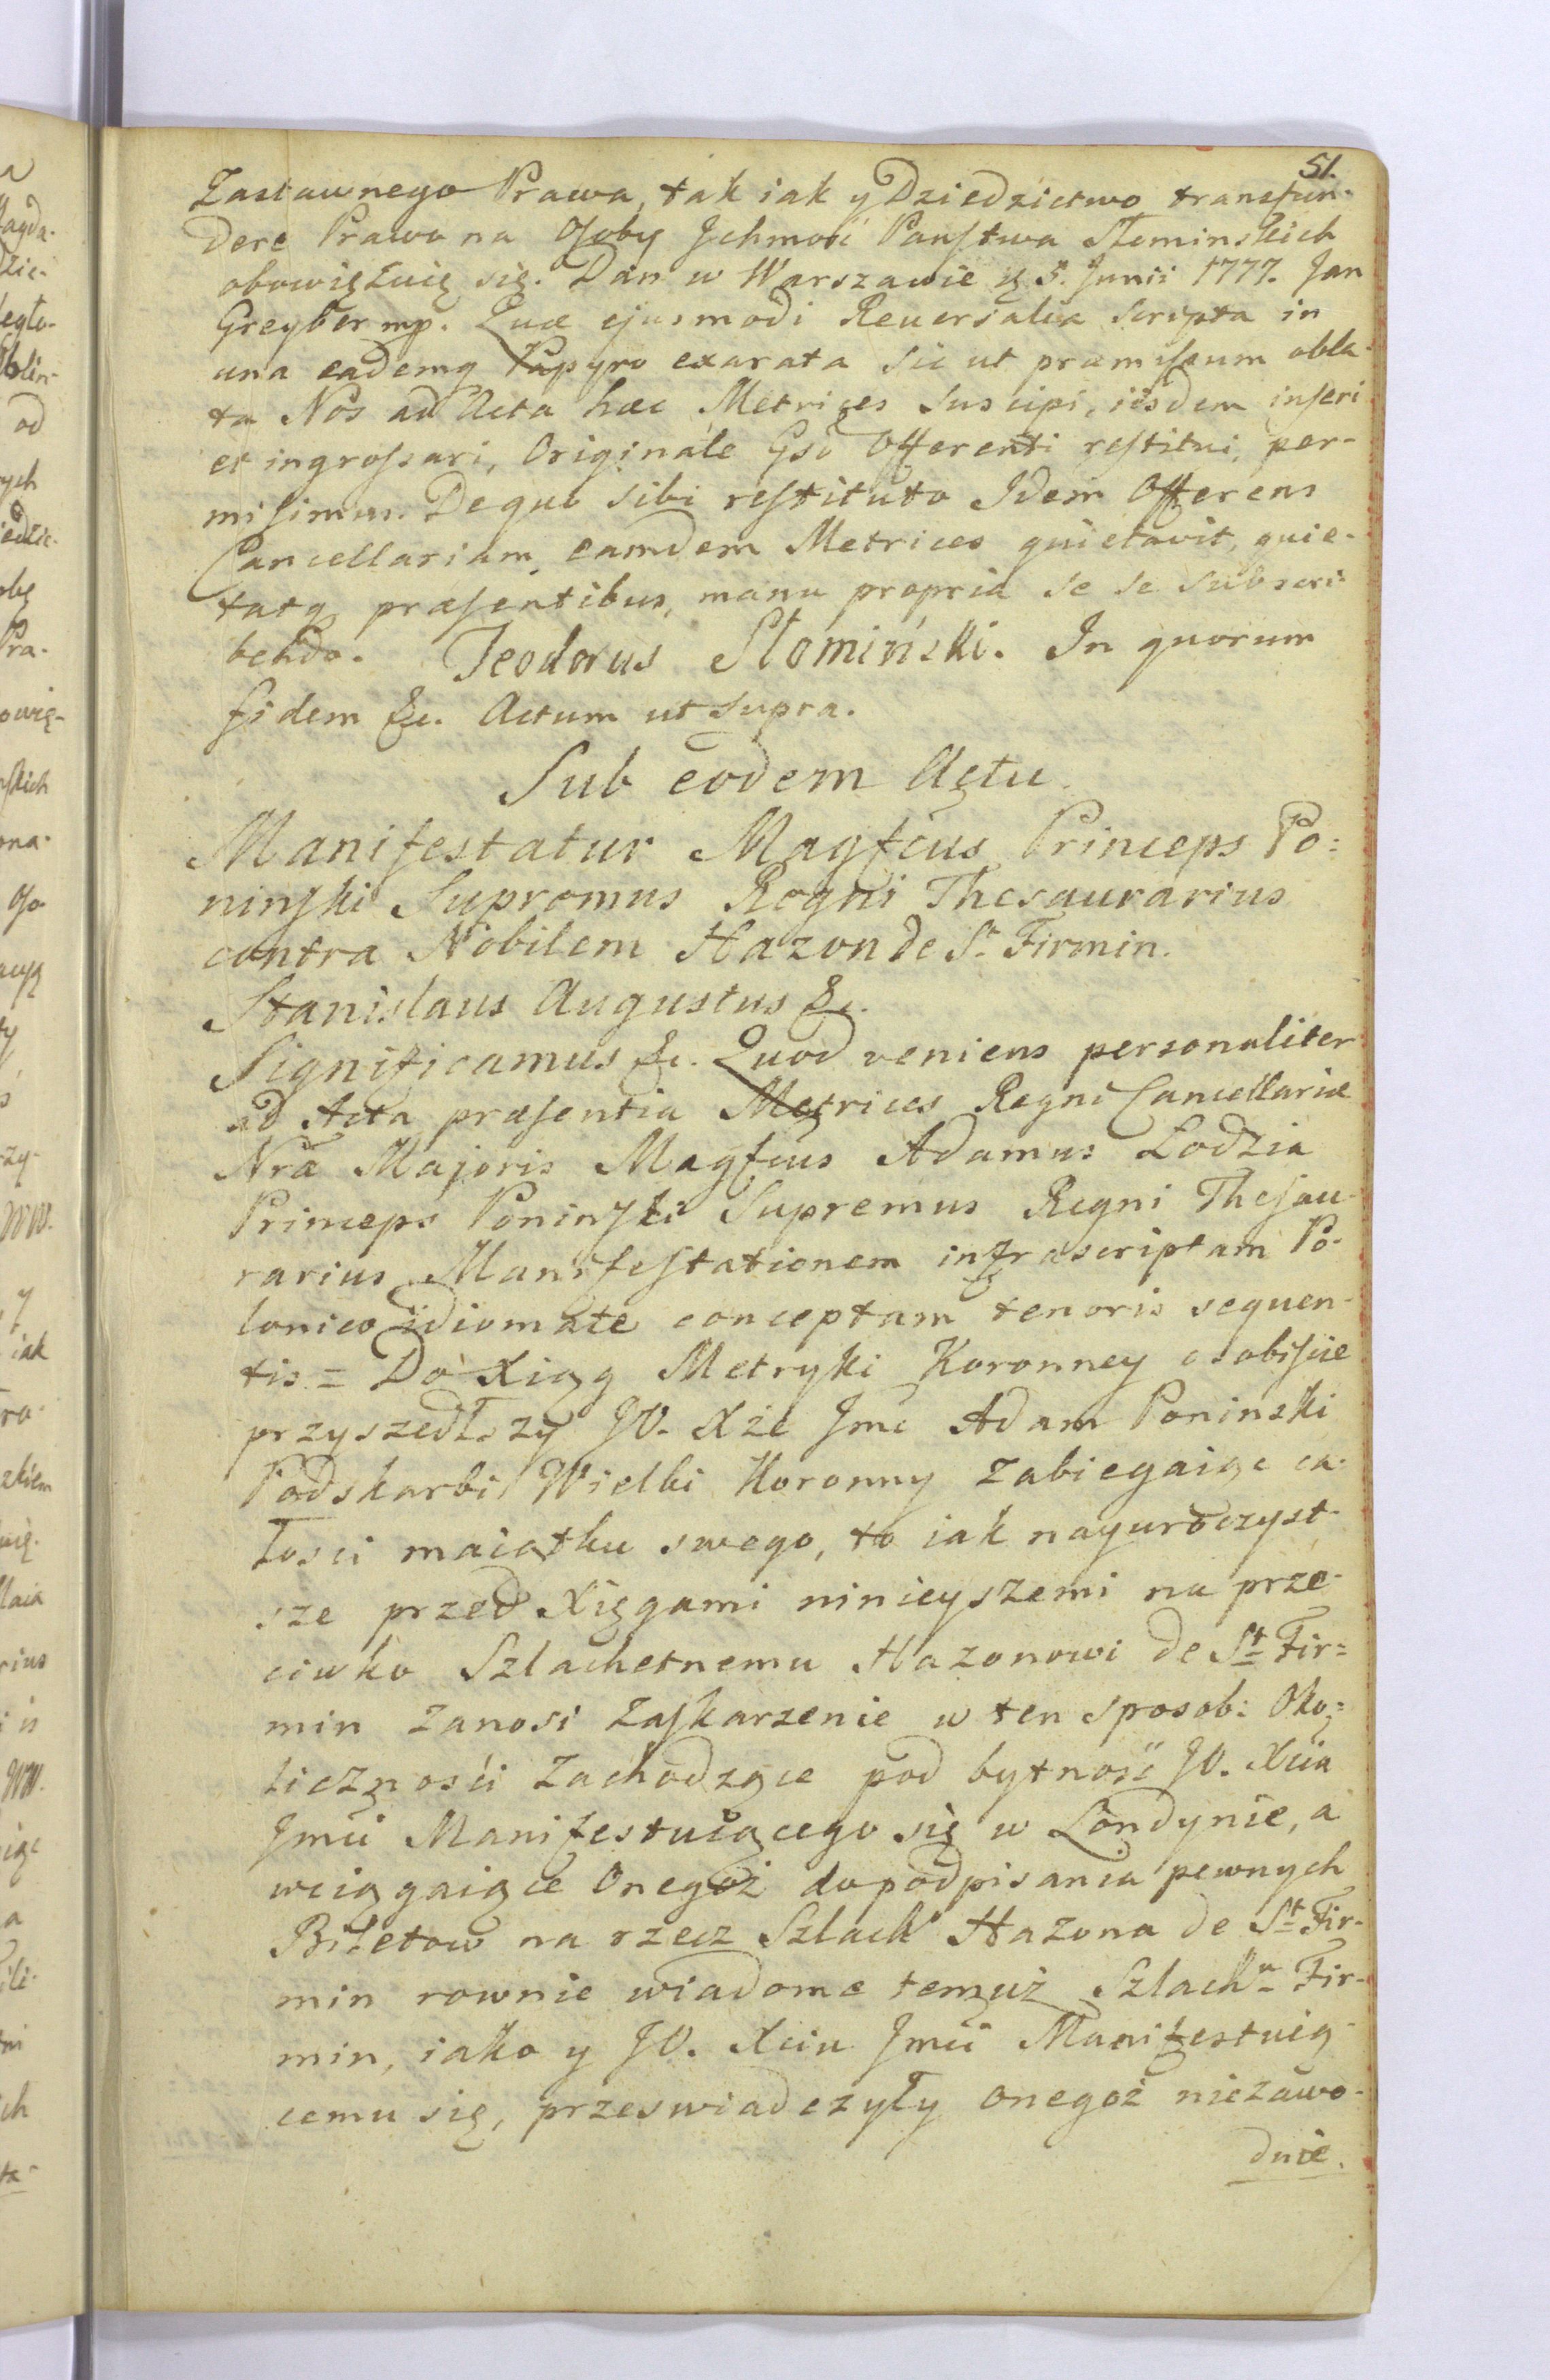 51.
Zastawnego Prawa, tak iak y Dziedzictwo transfun-
dere Prawo na Osoby Jchmość Państwa Słominskich
obowięzuię się. Dan w Warszawie 5. Junii 1777. Jan
Greyber mp. Quæ ejusmodi Reversalia scripta in
una eademq Papyro exarata sic ut præmissum obla-
ta Nos ad Acta hæc Metrices suscipi, iisdem inseri
et ingrossari, Originale Gso Offerenti restitui, per-
misimus. De quo sibi restituto Idem Offerens
Cancellariam eamdem Metrices quietavit, quie-
tatq præsentibus, manu propria se se subscri-
bendo. Teodorus Słomiński. In quorum
fidem &c. Actum ut supra.
Sub eodem Actu.
Manifestatur Magfcus Princeps Po:
ninski Supremus Regni Thesaurarius
contra Nobilem Hazon de St Firmin.
Stanislaus Augustus &c.
Significamus &c. Quod veniens personaliter
ad Acta præsentia Metrices Regni Cancellariæ
Nræ Majoris Magfcus Adamus Lodzia
Princeps Poninski Supremus Regni Thesau-
rarius Manifestationem infrascriptam Po-
lonico idiomate conceptam tenoris sequen-
tis = Do Xiąg Metryki Koronney osobiscie
przyszedłszy JO. Xże Jmć Adam Poninski
Podskarbi Wielki Koronny zabiegaiąc ca-
łosci maiątku swego, to iak nayuroczyst-
sze przed Xięgami ninieyszemi na prze-
ciwko Szlachetnemu Hazonowi de St Fir=
min zanosi zaskarzenie w ten sposob: Oko=
licznośći zachodzące pod bytność JO. Xcia
Jmći Manifestuiącego się w Londynie, a
wciągaiące Onegoż do podpisania pewnych
Biletow na rzecz Szlach° Hazona de St Fir-
min rownie wiadome temuż Szlachu Fir-
min, iako y JO. Xciu Jmći Manifestuią-
cemu się, przeswiadczyły onegoż niezawo-
dnie.